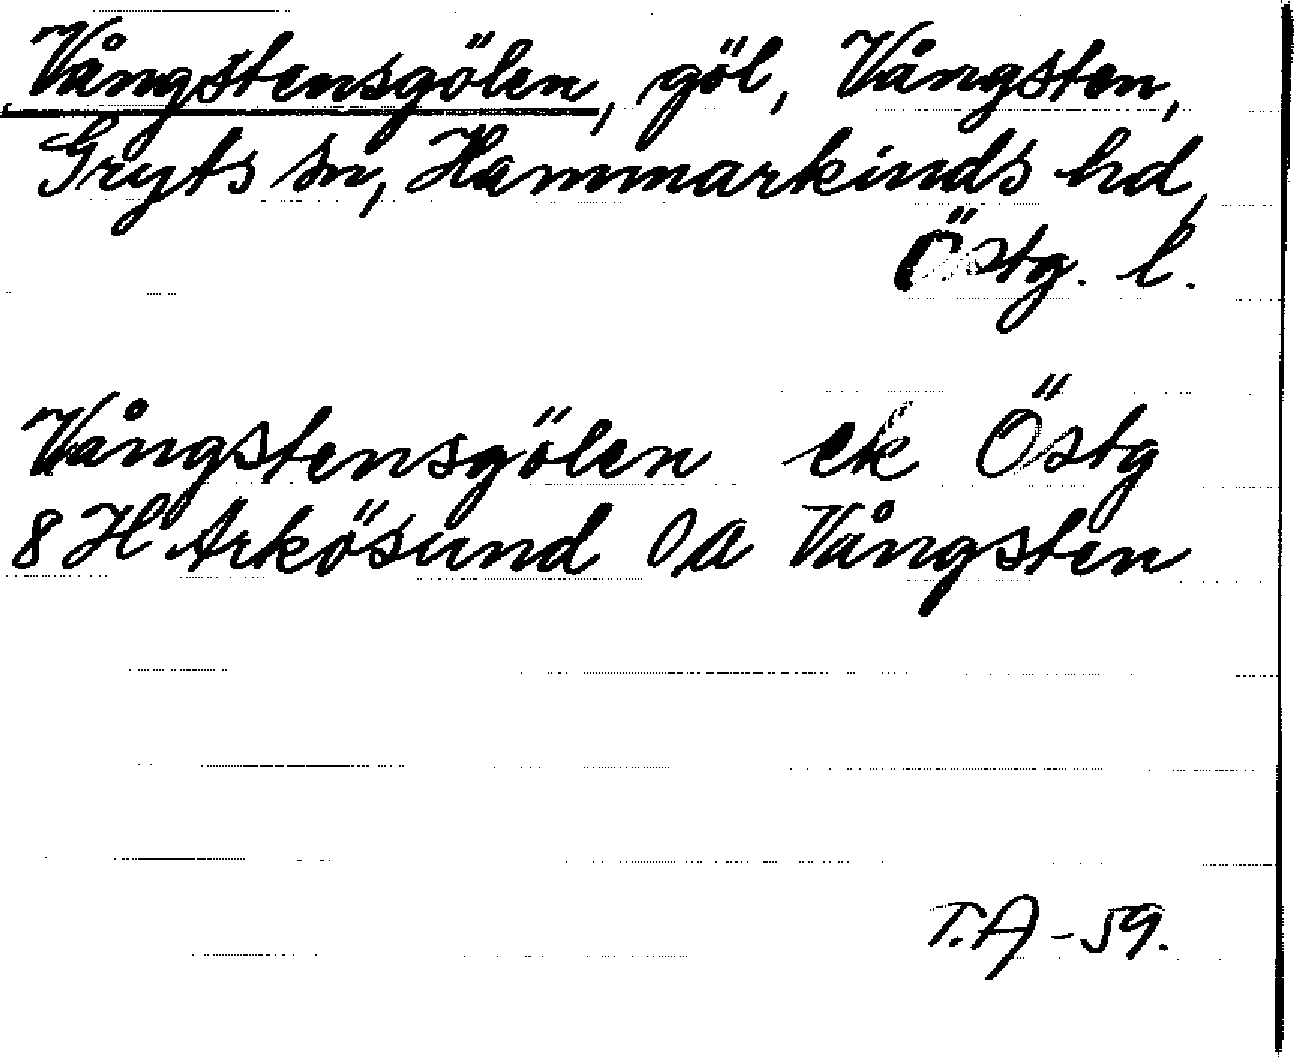 Vångstensgölen, göl, Vångsten,
Gryts sn, Hammarkinds hd,
Östg. l.
Vångstensgölen ek Östg
8 H Arkösund Oa Vångsten
T.A -59.